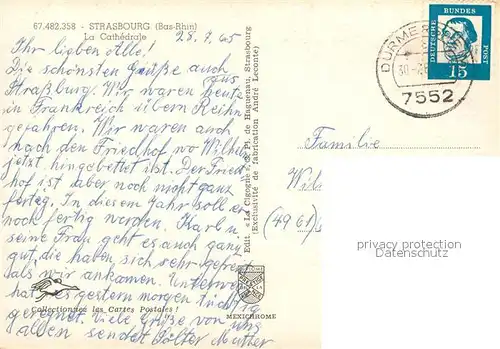 67.482.358 - STRASBOURG (Bas-Rhin)
La Cathédrale
28.7.65
Ihr lieben Alle!
Die schönsten Grüße auch aus
Straßburg. Wir waren heute
in Frankreich übern Rhein
gefahren. Wir waren auch
nach den Friedhof wo Wilhelm
jetzt hingebettet ist. Der Fried
hof ist aber noch nicht ganz
fertig. In diesem Jahr soll er
noch fertig werden. Karl u
seine Frau geht es auch ganz
gut, die haben sich sehr gefreut
als wir ankamen. Unterwegs
hat es gestern morgen tüchtig
geregnet. Viele Grüße von uns
allen sendet Mutter
Collectionnez les Cartes Postales !
Edit. « La Cigogne », Pl. de Haguenau, Strasbourg
(Exclusivité de fabrication André Leconte)
MEXICHROME
DEUTSCHE BUNDESPOST
15
DURMERSHEIM
7552
Familie
(4961)
protected by copyright
Datenschutz